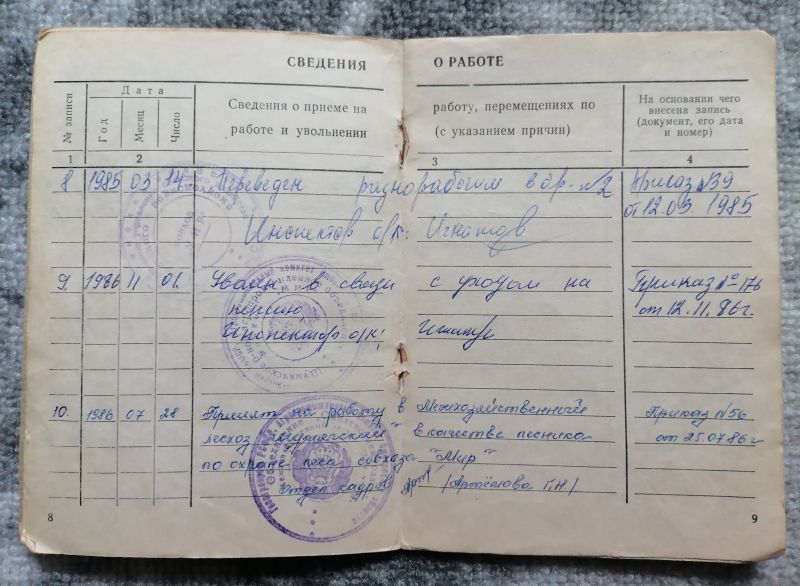 СВЕДЕНИЯ О РАБОТЕ
№ записи
Дата
Год
Месяц
Число
Сведения о приеме на работу, перемещениях по
работе и увольнении (с указанием причин)
На основании чего
внесена запись
(документ, его дата
и номер)
1 2 3 4
8 1985 03 14 Переведен разнорабочим в бр-№2 Приказ №39
от 12.03. 1985
Инспектор о/к: Игнатов
9. 1986 11 01. Уволен в связи с уходом на Приказ №176
пенсию от 12.11.86г.
Инспектор о/к:
10. 1986 07 28 Принят на работу в Межхозяйственный Приказ №56
лесхоз "Шумячский" в качестве лесника от 25.07.86г
по охране леса совхоза "Мир"
Отдел кадров /Артёмова Г.Н/
8
9